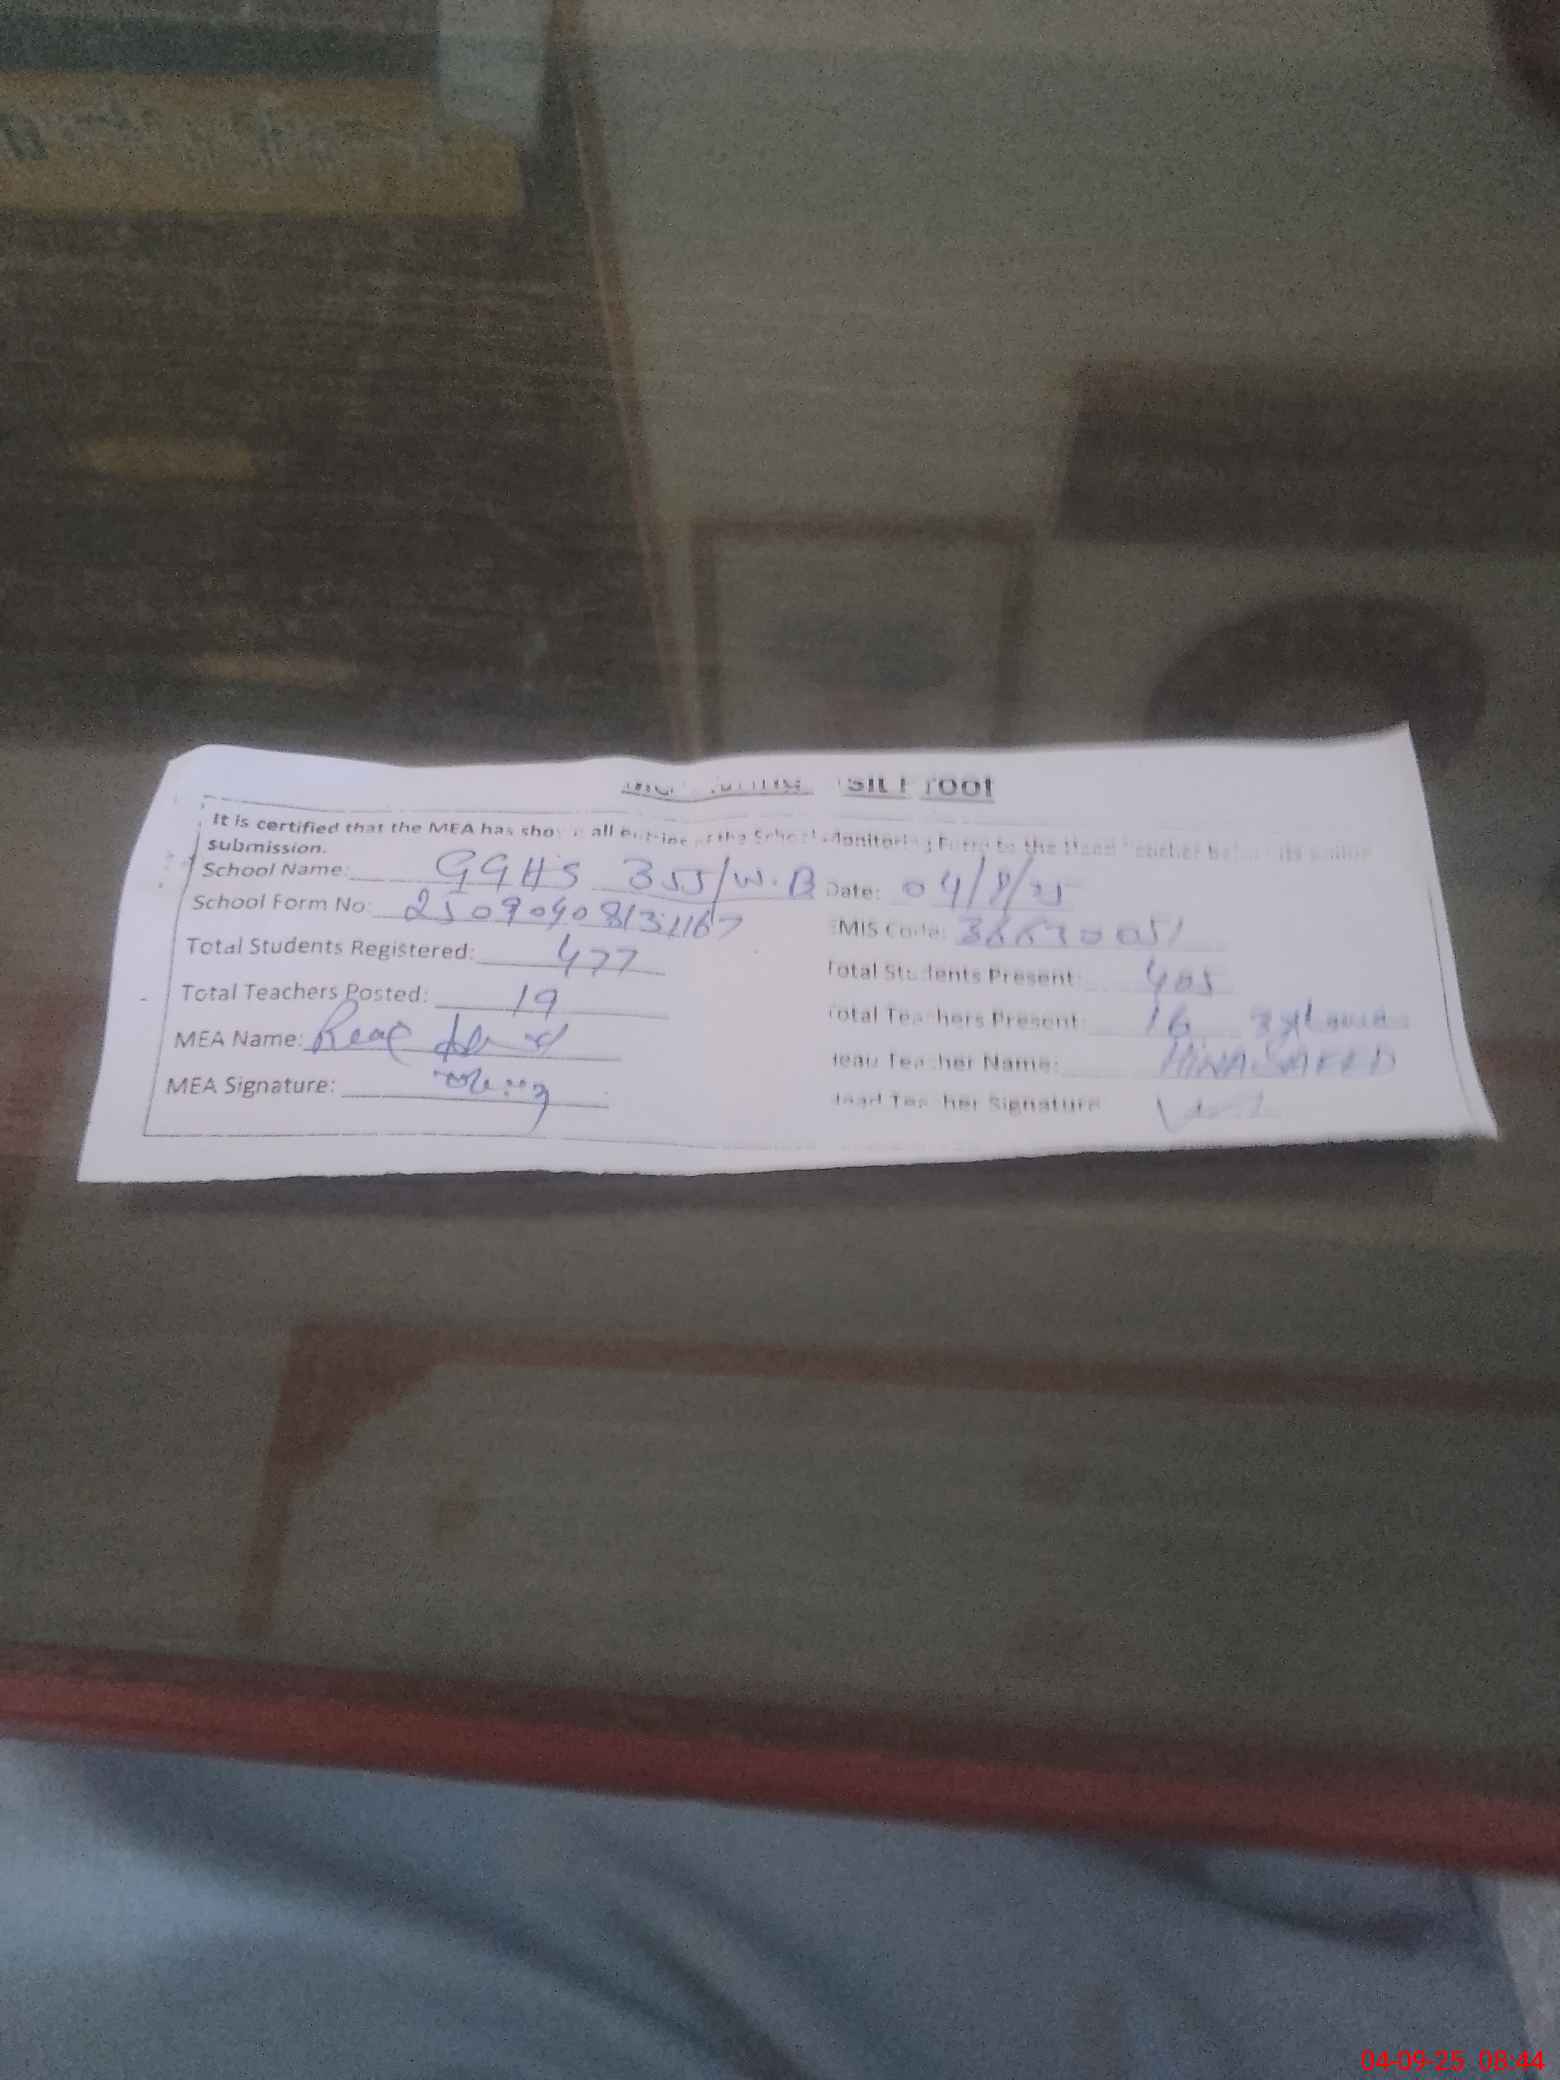 Visit Proof
It is certified that the MEA has shown all entries of the School Monitoring Form to the Head Teacher before its online
submission.
School Name: GGHS 355/W.B Date: 04/9/25
School Form No: 25090408131167
EMIS Code:
Total Students Registered: 477 Total Students Present: 405
Total Teachers Posted: 19 Total Teachers Present: 16
MEA Name: Head Teacher Name: HINA SAEED
MEA Signature: Head Teacher Signature
04-09-25 08:44